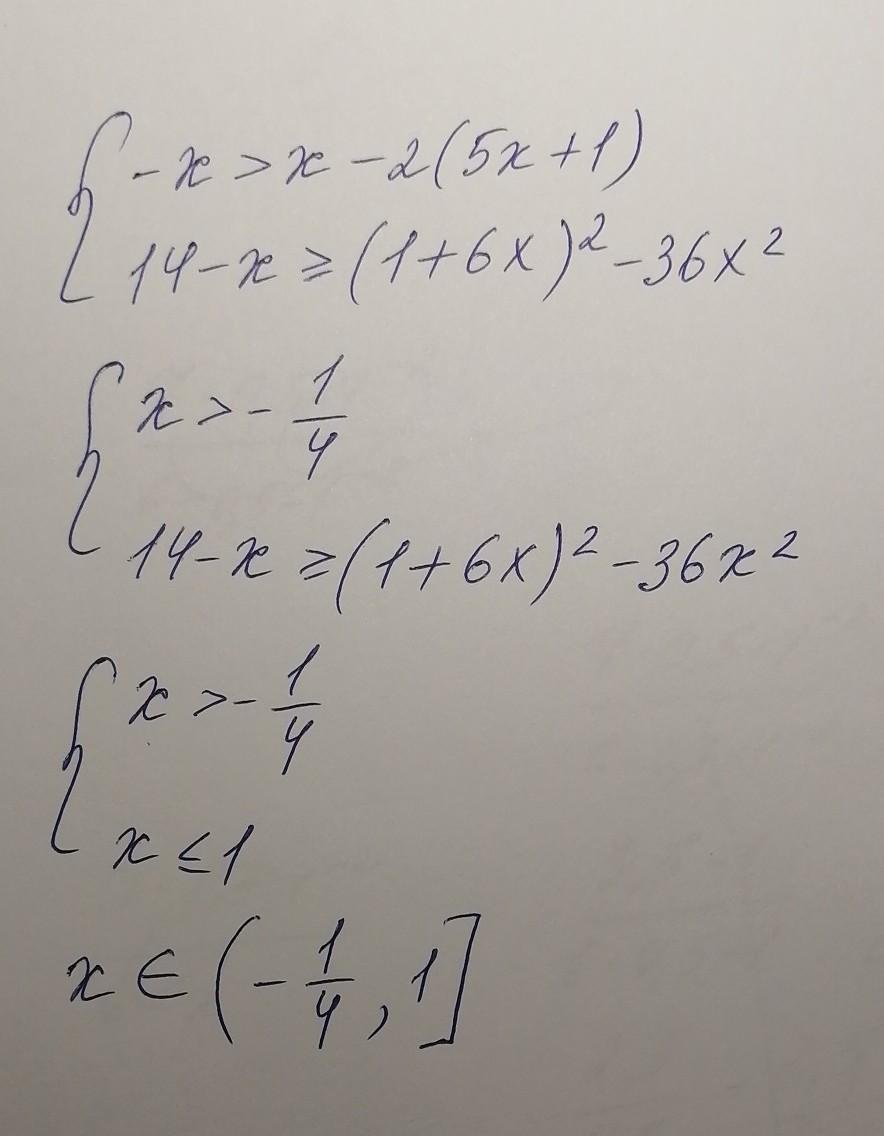 { -x > x - 2(5x + 1)
14 - x ≥ (1 + 6x)² - 36x²
{ x > - 1/4
14 - x ≥ (1 + 6x)² - 36x²
{ x > - 1/4
x ≤ 1
x ∈ (- 1/4, 1]